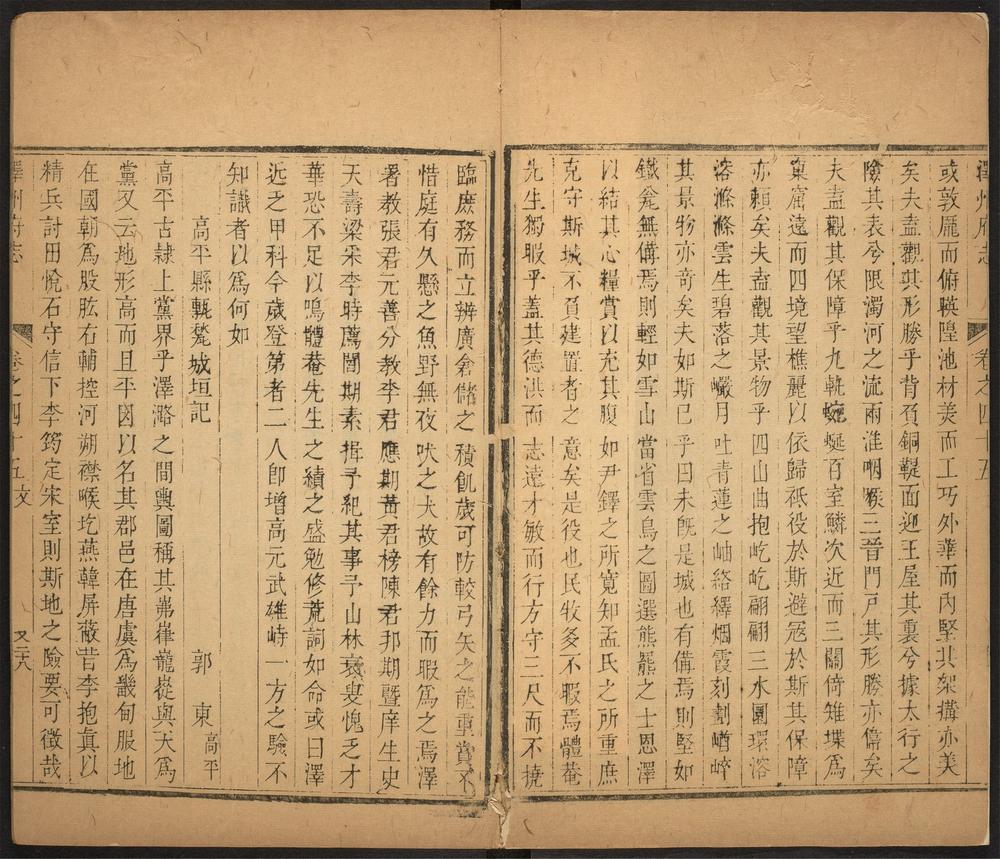 澤州府志
卷之四十五
或敦龎而俯暎隍池材美而工巧外華而內堅其架搆亦美
矣夫盍觀其形勝乎背負銅鞮面迎王屋其裏兮據太行之
險其表兮限濁河之流兩淮咽喉三晉門戸其形勝亦偉矣
夫盍觀其保障乎九軌蜿蜒百室鱗次近而三關倚雉堞爲
巢窟遠而四境望樵麗以依歸祇役於斯避冦於斯其保障
亦頼矣夫盍觀其景物乎四山曲抱屹屹翩翩三水圍環溶
溶滌滌雲生碧落之巘月吐青蓮之岫絡繹烟霞刻劃崷崪
其景物亦竒矣夫如斯已乎曰未旣是城也有備焉則堅如
鐵瓮無備焉則輕如雪山當省雲鳥之圖選熊羆之士恩澤
以結其心糧賞以充其腹如尹鐸之所寬知孟氏之所重庶
克守斯城不負建置者之意矣是役也民牧多不暇焉體菴
先生獨暇乎蓋其德洪而志遠才敏而行方守三尺而不撓
臨庶務而立辨廣倉儲之積飢歲可防較弓矢之能重賞不
惜庭有久懸之魚野無夜吠之犬故有餘力而暇爲之焉澤
署教張君元善分教李君應期黃君榜陳君邦期暨庠生史
天壽梁采李時薦閻期素揖予紀其事予山林衰叟愧乏才
華恐不足以鳴體菴先生之績之盛勉修荒詞如命或曰澤
近乏甲科今歲登第者二人卽增高元武雄峙一方之驗不
知識者以爲何如
高平縣甎甃城垣記
郭東高平
高平古隸上黨界乎澤潞之間輿圖稱其岪嵂巃嵸與天爲
黨又云地形高而且平因以名其郡邑在唐虞爲畿甸服地
在國朝爲股肱右輔控河朔襟喉圪燕韓屏蔽昔李抱眞以
精兵討田悅石守信下李筠定宋室則斯地之險要可徵哉
澤州府志
卷之四十五文
又二八